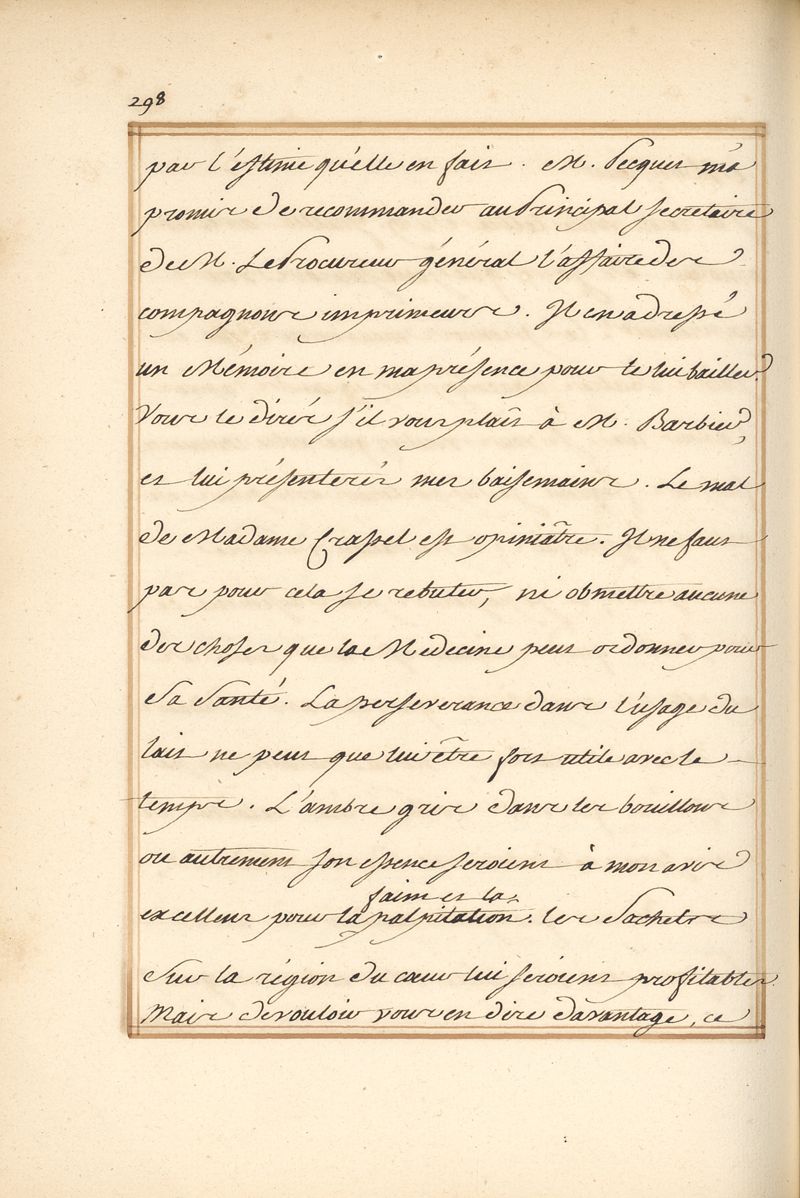 298
par l'estime qu'elle en fait. M. Pecquet m'a
promis de recommander au Principal secretaire
de M. Le Procureur général l'affaire des
compagnons imprimeurs. Il en a dressé
un Mémoire en ma présence pour le lui bailler.
Vous le dirés s'il vous plaît à M. Barbier,
et lui présenterés mes baisemains. Le mal
de Madame Crassel est opiniâtre. Il ne faut
pas pour cela se rebuter, ni obmettre aucune
des choses que la Medecine peut ordonner pour
Sa Santé. La perseverance dans l'usage du
lait ne peut que lui être fort utile avec le
temps. L'ambre gris dans les bouillons
ou autrement son essence seroient à mon avis
faim et la
excellens pour la palpitation. les Sachets
Sur la région du cœur lui seroient profitables.
Mais de vouloir vous en dire davantage, ce